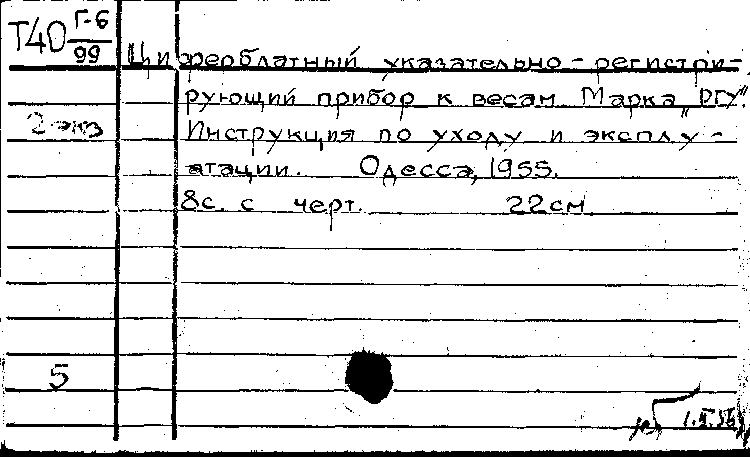 Т40 Г-6/99
Циферблатный указательно-регистри-
рующий прибор к весам Марка „РГУ".
2 экз
Инструкция по уходу и эксплу-
атации. Одесса, 1955.
8с. с черт. 22см.
5